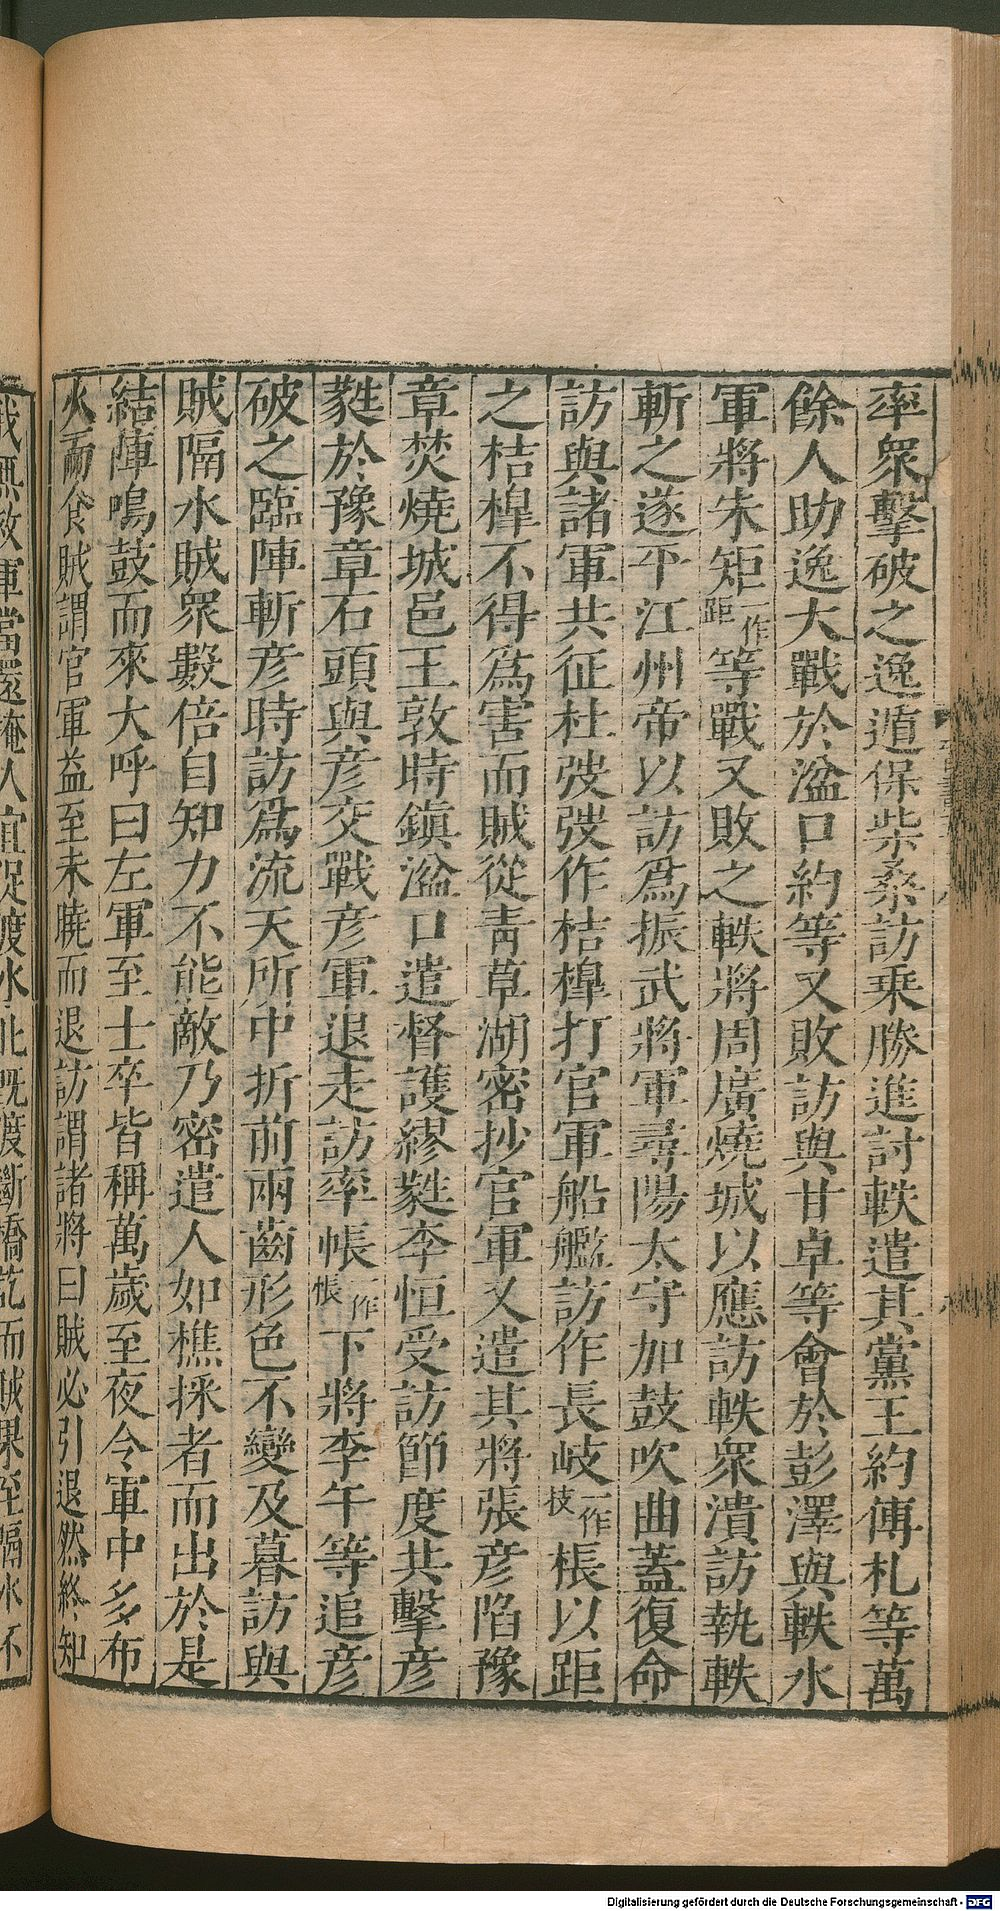 率衆擊破之逸遁保柴桑訪乗勝進討軼遣其黨王約傅札等萬
餘人助逸大戰於湓口約等又敗訪與甘卓等會於彭澤與軼水
軍將朱矩一作距等戰又敗之軼將周廣燒城以應訪軼衆潰訪執軼
斬之遂平江州帝以訪爲振武將軍尋陽太守加鼓吹曲蓋復命
訪與諸軍共征杜弢弢作桔橰打官軍船艦訪作長岐一作技棖以距
之桔橰不得爲害而賊從青草湖密抄官軍又遣其將張彦陷豫
章焚燒城邑王敦時鎮湓口遣督護繆蕤李恒受訪節度共擊彦
蕤於豫章石頭與彦交戰彦軍退走訪率帳一作悵下將李午等追彦
破之臨陣斬彦時訪爲流天所中折前兩齒形色不變及暮訪與
賊隔水賊衆數倍自知力不能敵乃密遣人如樵採者而出於是
結陣鳴鼓而來大呼曰左軍至士卒皆稱萬歲至夜令軍中多布
火而食賊謂官軍益至未曉而退訪謂諸將曰賊必引退然終知
我無救軍當還掩人宜促渡水北既渡斷橋訖而賊果至隔水不
Digitalisierung gefördert durch die Deutsche Forschungsgemeinschaft - DFG